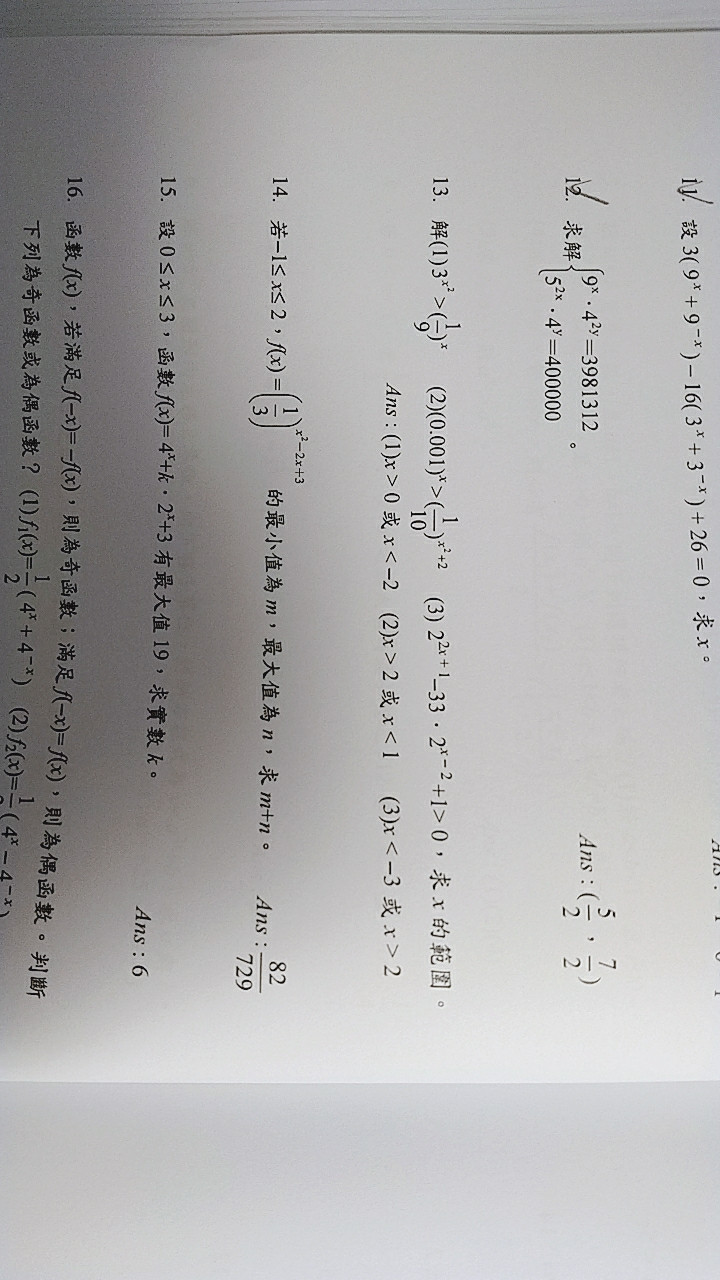 11. 設 3(9ˣ + 9⁻ˣ) − 16(3ˣ + 3⁻ˣ) + 26 = 0，求 x。
12. 求解{9ˣ · 4²ʸ =3981312
5²ˣ · 4ʸ =400000 。
Ans : (5/2 , 7/2)
13. 解(1)3^(x²) > (1/9)^x (2)(0.001)^x > (1/10)^(x²+2) (3) 2^(2x+1) −33 · 2^(x−2) +1> 0，求 x 的範圍。
Ans : (1)x > 0 或 x < −2 (2)x > 2 或 x < 1 (3)x < −3 或 x > 2
14. 若−1≤ x≤ 2，f(x) = (1/3)^(x²−2x+3) 的最小值為 m，最大值為 n，求 m+n。
Ans : 82/729
15. 設 0 ≤ x ≤ 3，函數 f(x)= 4ˣ+k · 2ˣ+3 有最大值 19，求實數 k。
Ans : 6
16. 函數 f(x)，若滿足 f(−x)= −f(x)，則為奇函數；滿足 f(−x)= f(x)，則為偶函數。判斷
下列為奇函數或為偶函數？ (1) f₁(x)= 1/2 ( 4ˣ + 4⁻ˣ ) (2) f₂(x)= 1/2 ( 4ˣ − 4⁻ˣ )